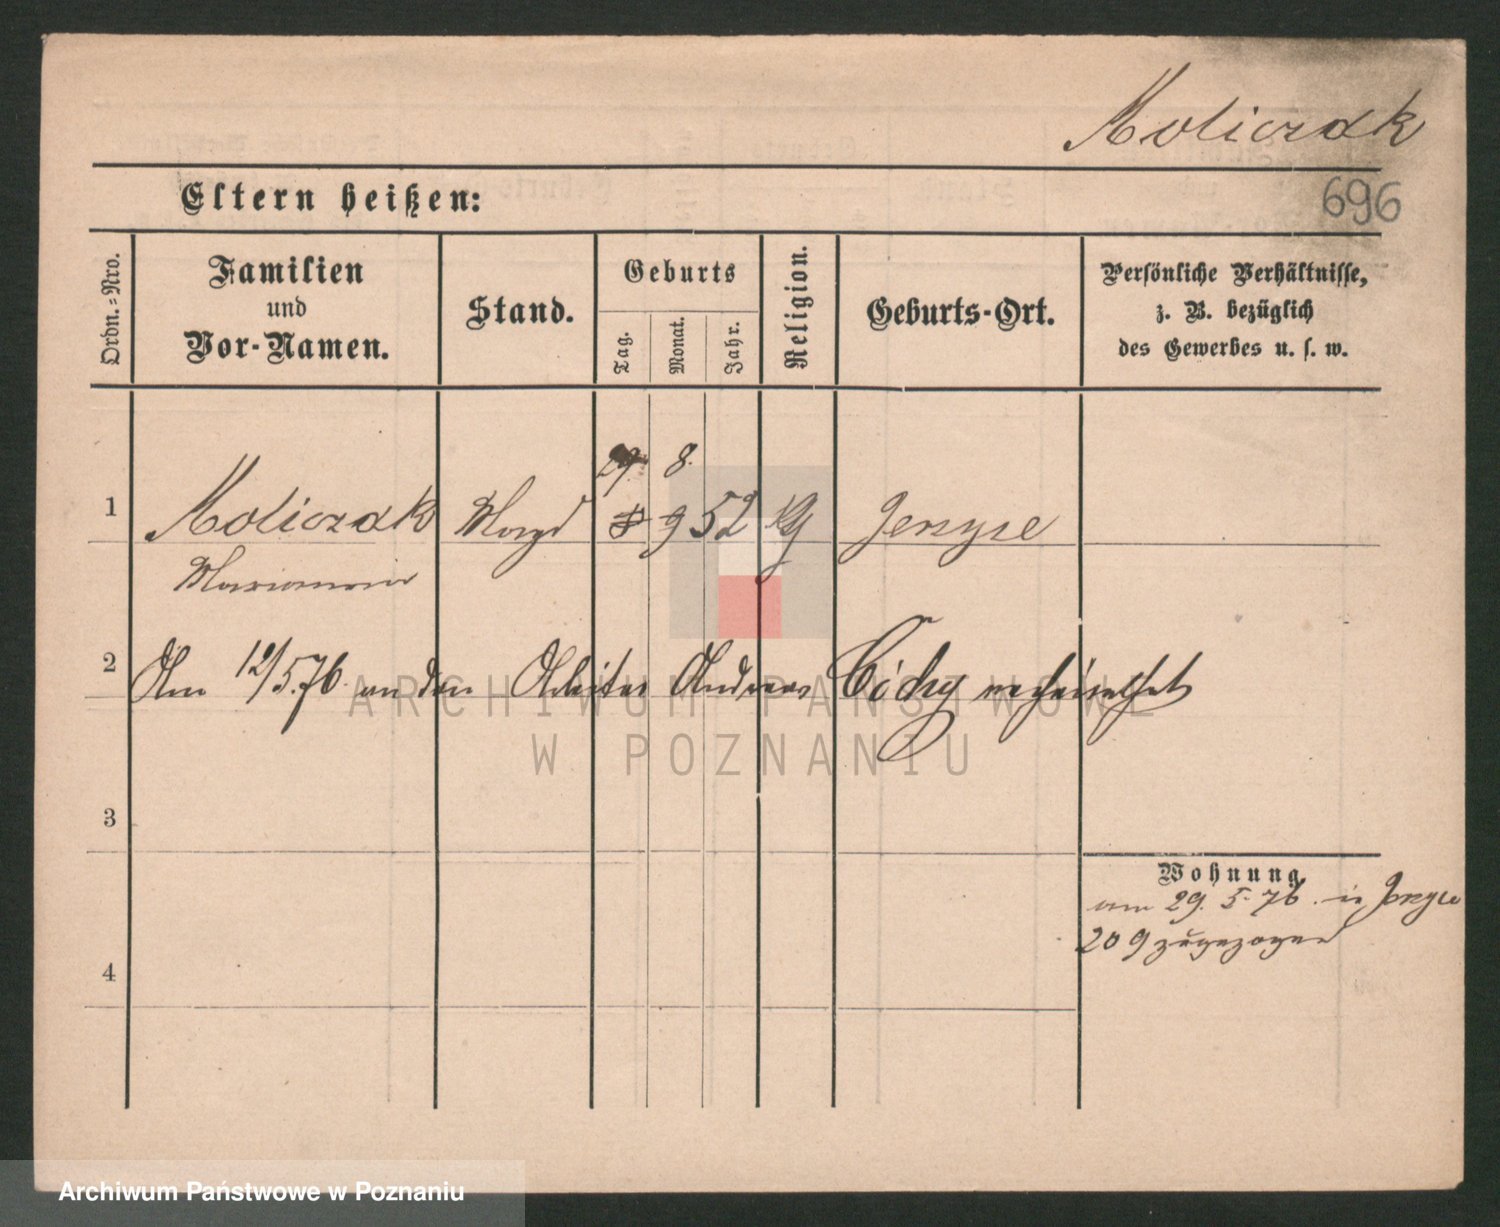 Moliczak
696
Eltern heißen:
Ordn.=Nro.
Familien
und
Vor-Namen.
Stand.
Geburts
Tag.
Monat.
Jahr.
Religion.
Geburts-Ort.
Persönliche Verhältnisse,
z. B. bezüglich
des Gewerbes u. s. w.
29. 8.
1 Moliczak Magd 8 9 52 Jerzyce
Marianna
2 Am 12/5.76 an den Arbeiter Andreas Cichy verheirathet
3
4
Wohnung
am 29. 5. 76. in Jerzyce
209 zugezogen
ARCHIWUM PAŃSTWOWE
W POZNANIU
Archiwum Państwowe w Poznaniu